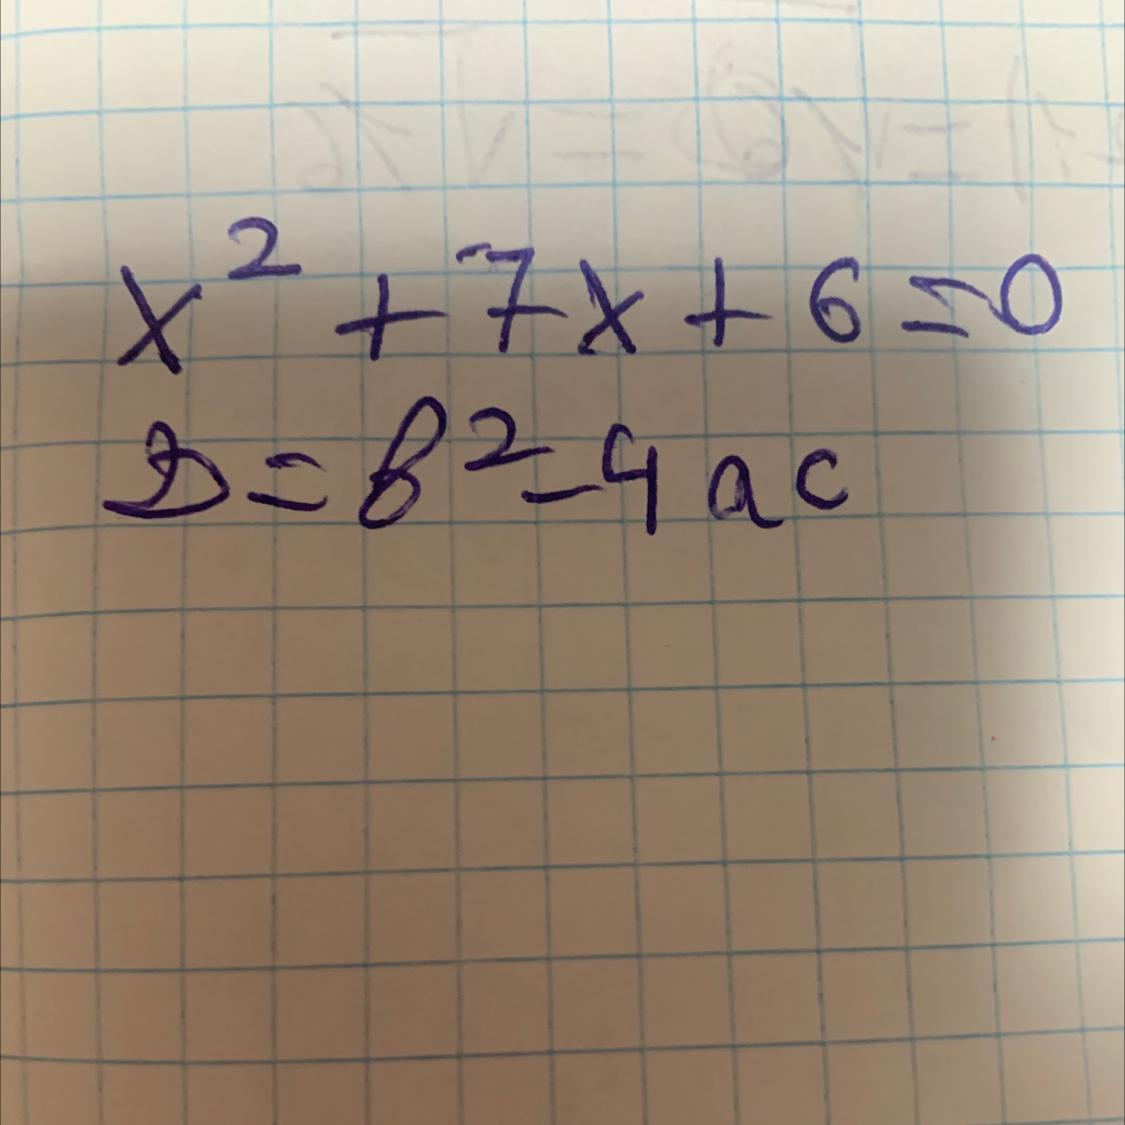 x² + 7x + 6 = 0
D = b² - 4ac